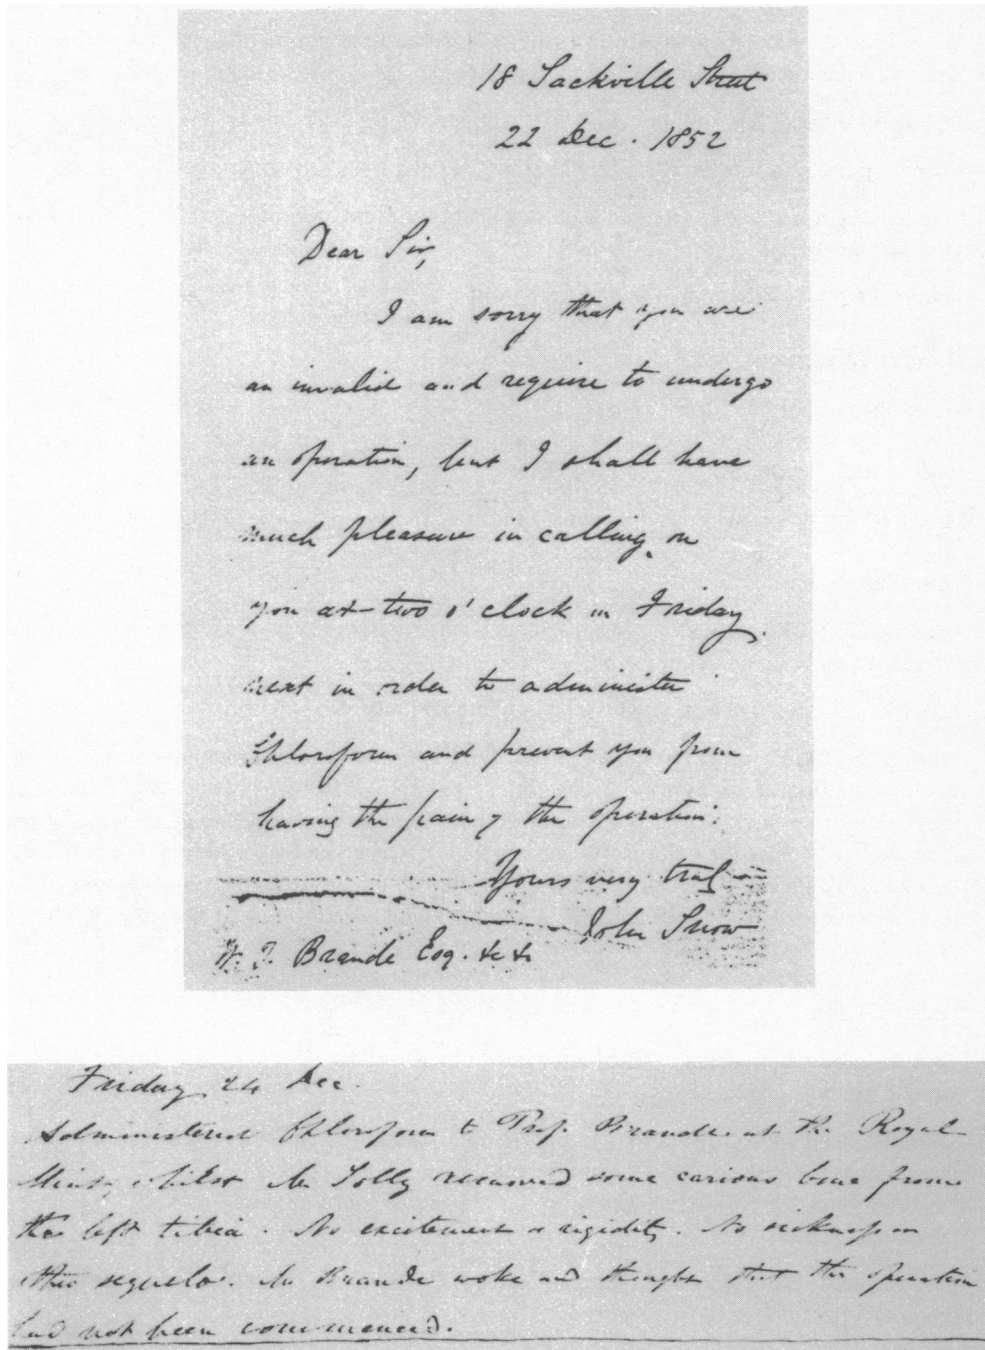 18 Sackville Street
22 Dec. 1852
Dear Sir,
I am sorry that you are
an invalid and require to undergo
an operation, but I shall have
much pleasure in calling on
you at two o'clock on Friday
next in order to administer
Chloroform and prevent you from
having the pain of the operation.
Yours very truly
John Snow
W. T. Brande Esq. &c &c
Friday 24 Dec.
Administered Chloroform to Prof. Brande at the Royal
Mint, whilst Mr Solly removed some carious bone from
the left tibia. No excitement or rigidity. No sickness or
other sequelae. Mr Brande woke and thought that the operation
had not been commenced.